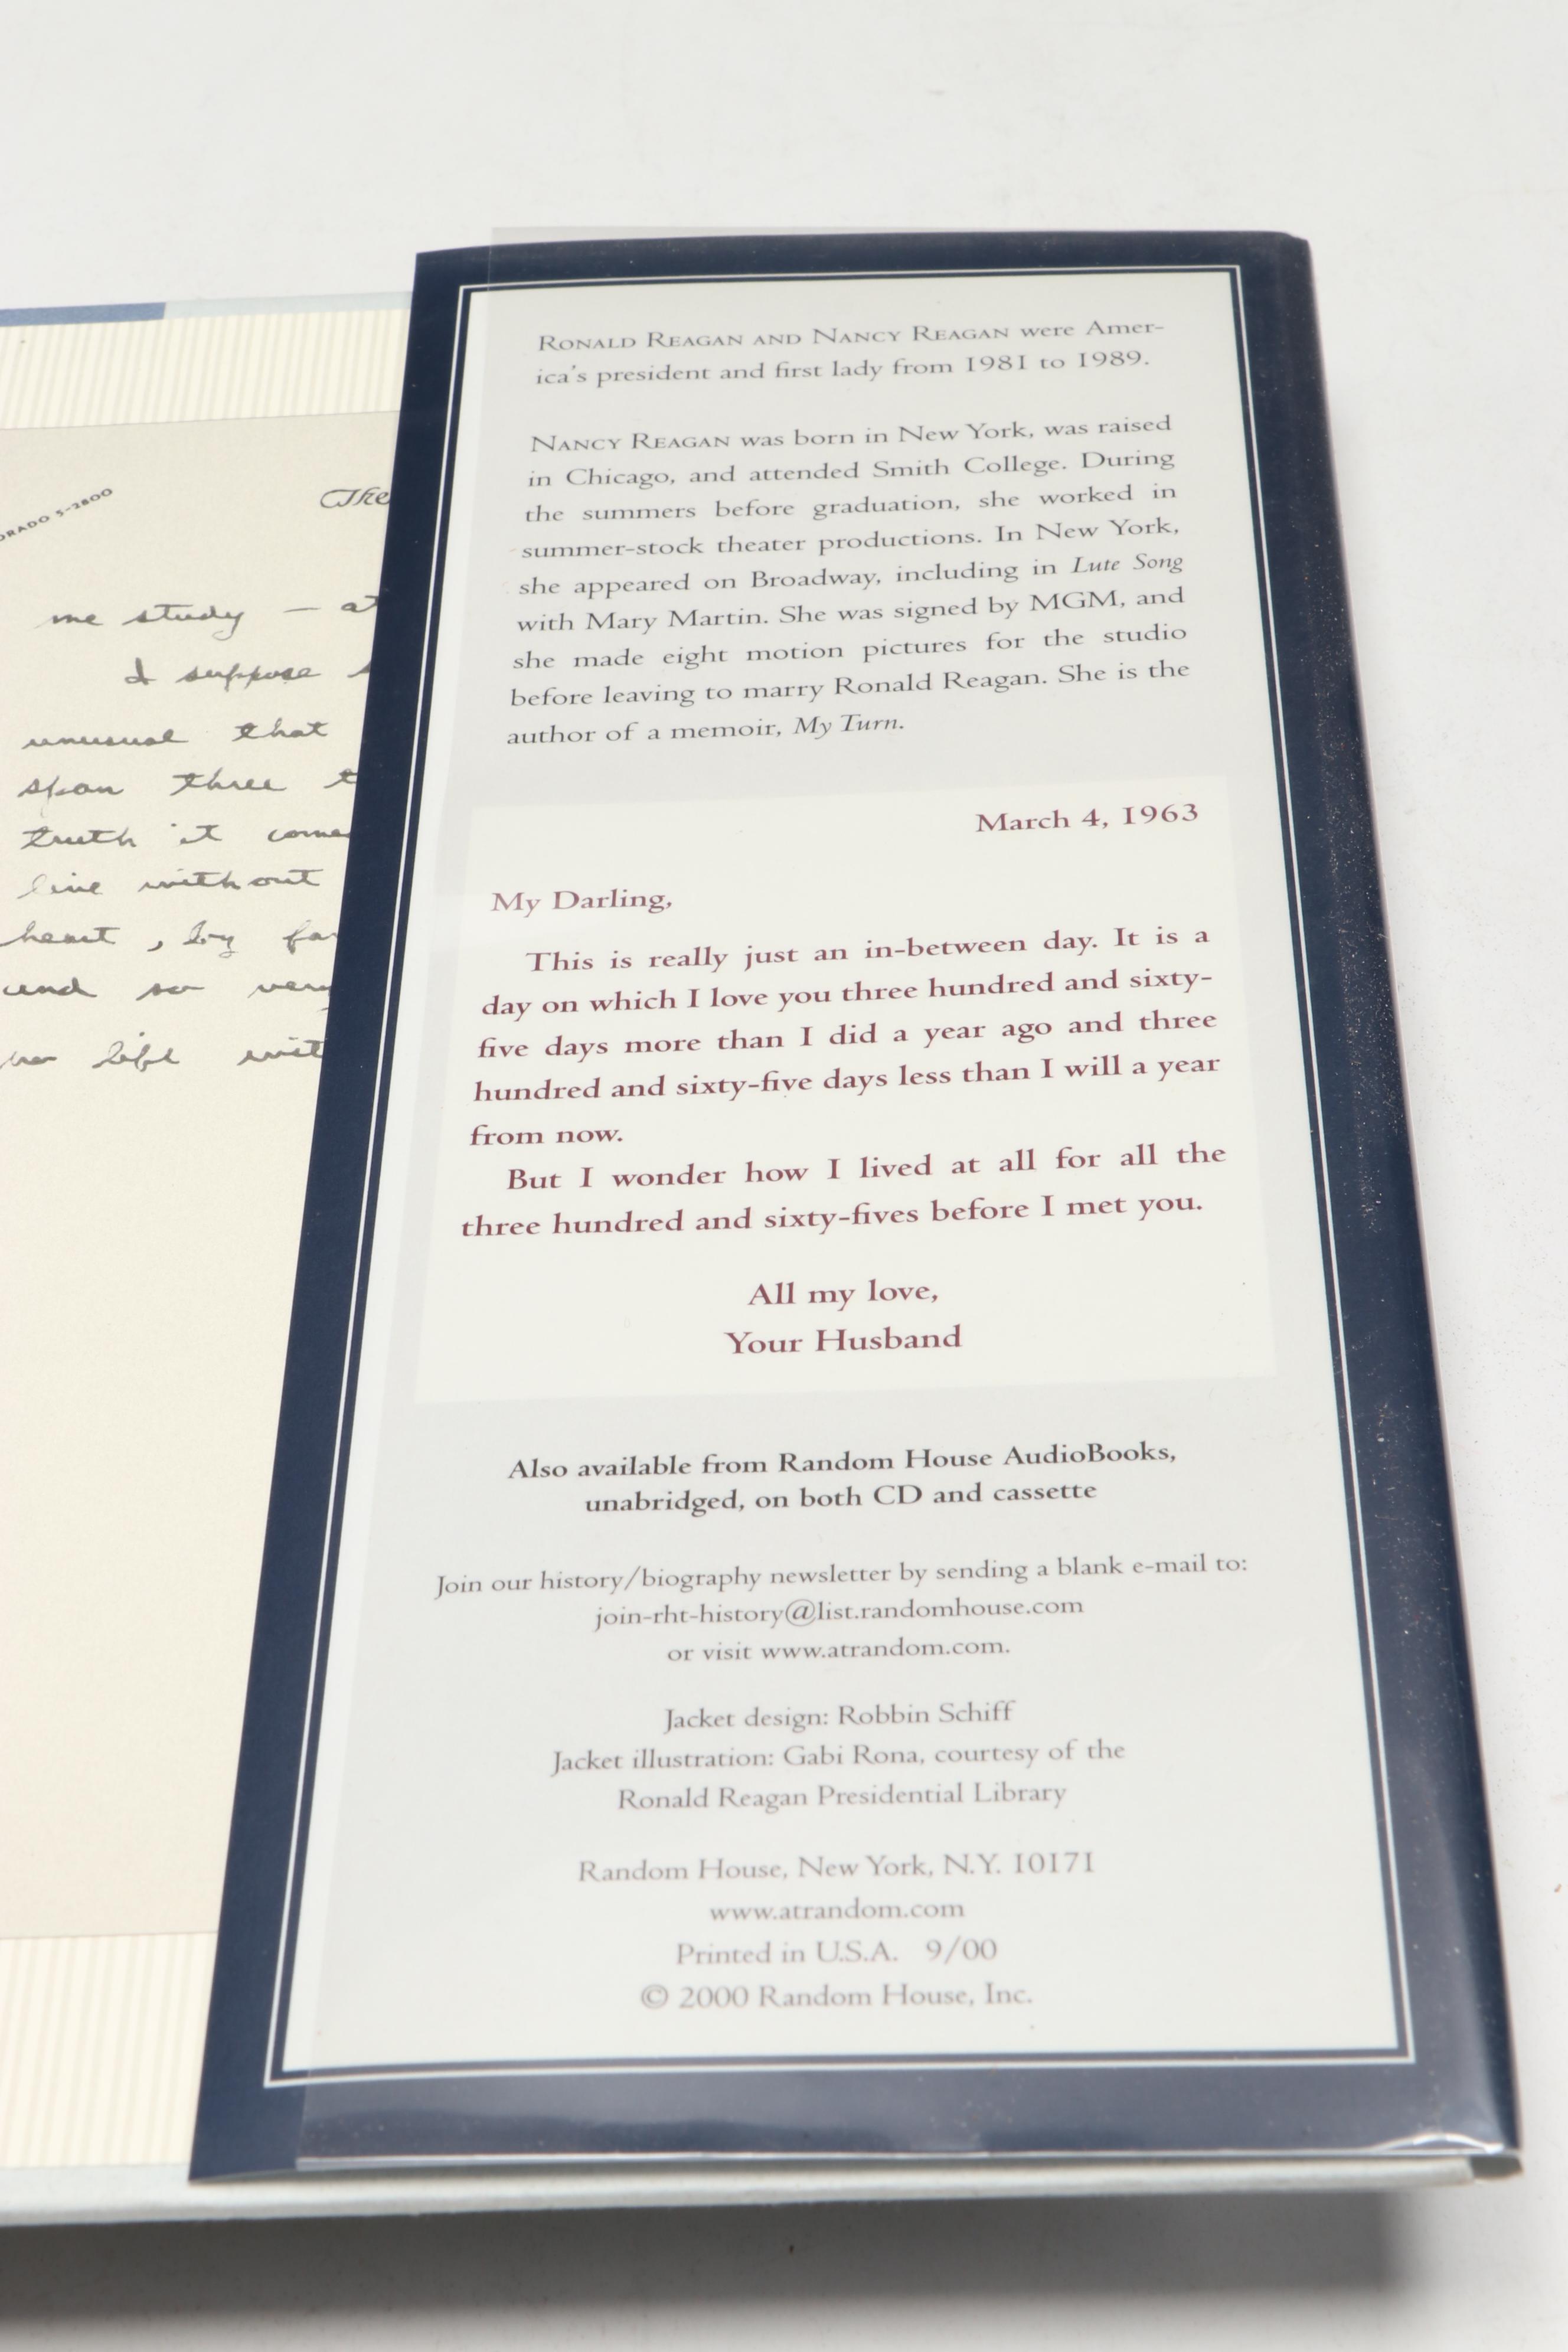 5-2800
The
me study — at
I suppose
unusual that
span three t
truth it come
live without
heart, by far
and so very
no life wit
RONALD REAGAN AND NANCY REAGAN were Amer-
ica's president and first lady from 1981 to 1989.
NANCY REAGAN was born in New York, was raised
in Chicago, and attended Smith College. During
the summers before graduation, she worked in
summer-stock theater productions. In New York,
she appeared on Broadway, including in Lute Song
with Mary Martin. She was signed by MGM, and
she made eight motion pictures for the studio
before leaving to marry Ronald Reagan. She is the
author of a memoir, My Turn.
March 4, 1963
My Darling,
This is really just an in-between day. It is a
day on which I love you three hundred and sixty-
five days more than I did a year ago and three
hundred and sixty-five days less than I will a year
from now.
But I wonder how I lived at all for all the
three hundred and sixty-fives before I met you.
All my love,
Your Husband
Also available from Random House AudioBooks,
unabridged, on both CD and cassette
Join our history/biography newsletter by sending a blank e-mail to:
join-rht-history@list.randomhouse.com
or visit www.atrandom.com.
Jacket design: Robbin Schiff
Jacket illustration: Gabi Rona, courtesy of the
Ronald Reagan Presidential Library
Random House, New York, N.Y. 10171
www.atrandom.com
Printed in U.S.A. 9/00
© 2000 Random House, Inc.